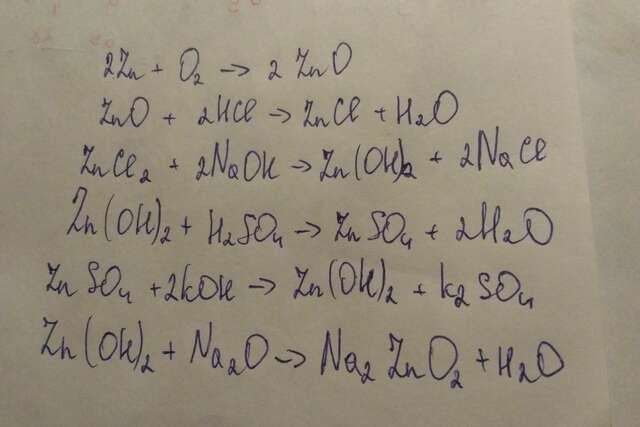 2Zn + O₂ → 2 ZnO
ZnO + 2HCl → ZnCl + H₂O
ZnCl₂ + 2NaOH → Zn(OH)₂ + 2NaCl
Zn(OH)₂ + H₂SO₄ → ZnSO₄ + 2H₂O
ZnSO₄ + 2KOH → Zn(OH)₂ + K₂SO₄
Zn(OH)₂ + Na₂O → Na₂ZnO₂ + H₂O